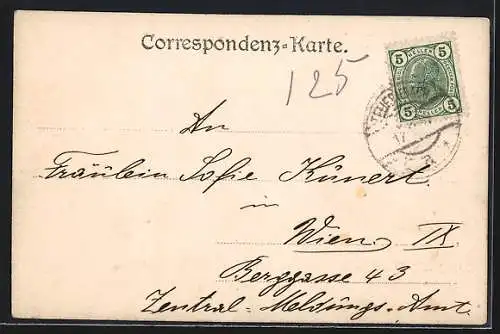 Correspondenz-Karte.
125
5 HELLER 5
5 HELLER 5
An
Fräulein Sofie Künert
in
Wien IX
Berggasse 43
Zentral-Meldungs-Amt.